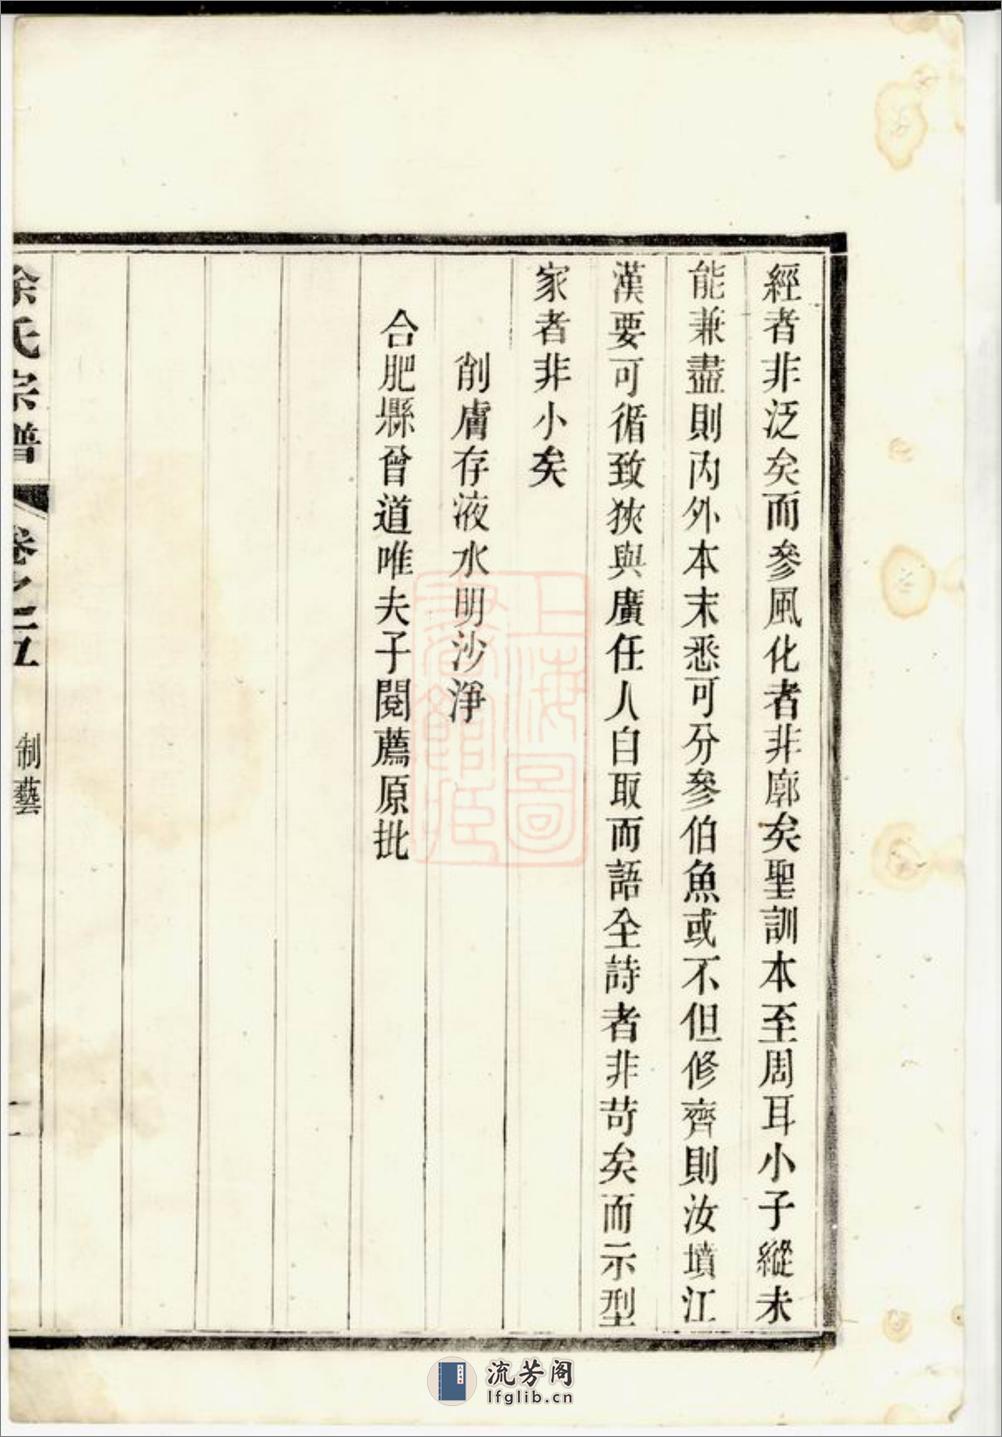 經者非泛矣而參風化者非廓矣聖訓本至周耳小子縱未
能兼盡則內外本末悉可分參伯魚或不但修齊則汝墳江
漢要可循致狹與廣任人自取而語全詩者非苛矣而示型
家者非小矣
削膚存液水明沙淨
合肥縣曾道唯夫子閱薦原批
徐氏宗譜
卷之五
制藝
上海圖書館藏
流芳阁
lfglib.cn